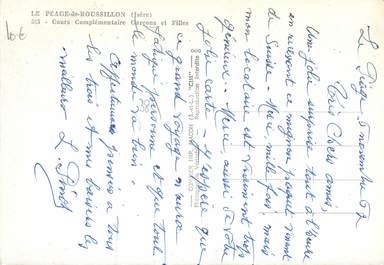 LE PÉAGE-de-ROUSSILLON (Isère)
Cours Complémentaire Garçons et Filles
Le Péage 5 novembre 62
Très Chers amis,
Une jolie surprise tout à l'heure
en recevant ce mignon paquet venant
de Suisse - Merci mille fois, mais
mon locataire est vraiment trop
généreux - Merci aussi de votre
jolie carte - J'espère que
ce grand voyage n'aura
fatigué personne et que tout
le monde va bien.
Affectueuses pensées à tous
les trois et mes baisers les
meilleurs